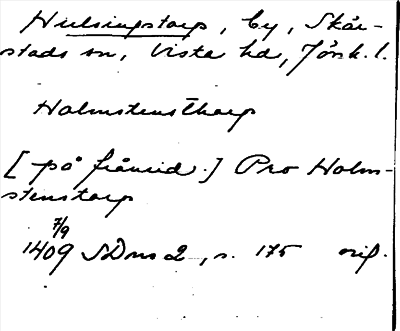 Hulsingstorp, by, Skär-
stads sn, Vista hd, Jönk. l.
Holmstensthorp
[på frånsid.] Pro Holm-
stenstorp
7/9
1409 SDns 2, s. 175 orig.